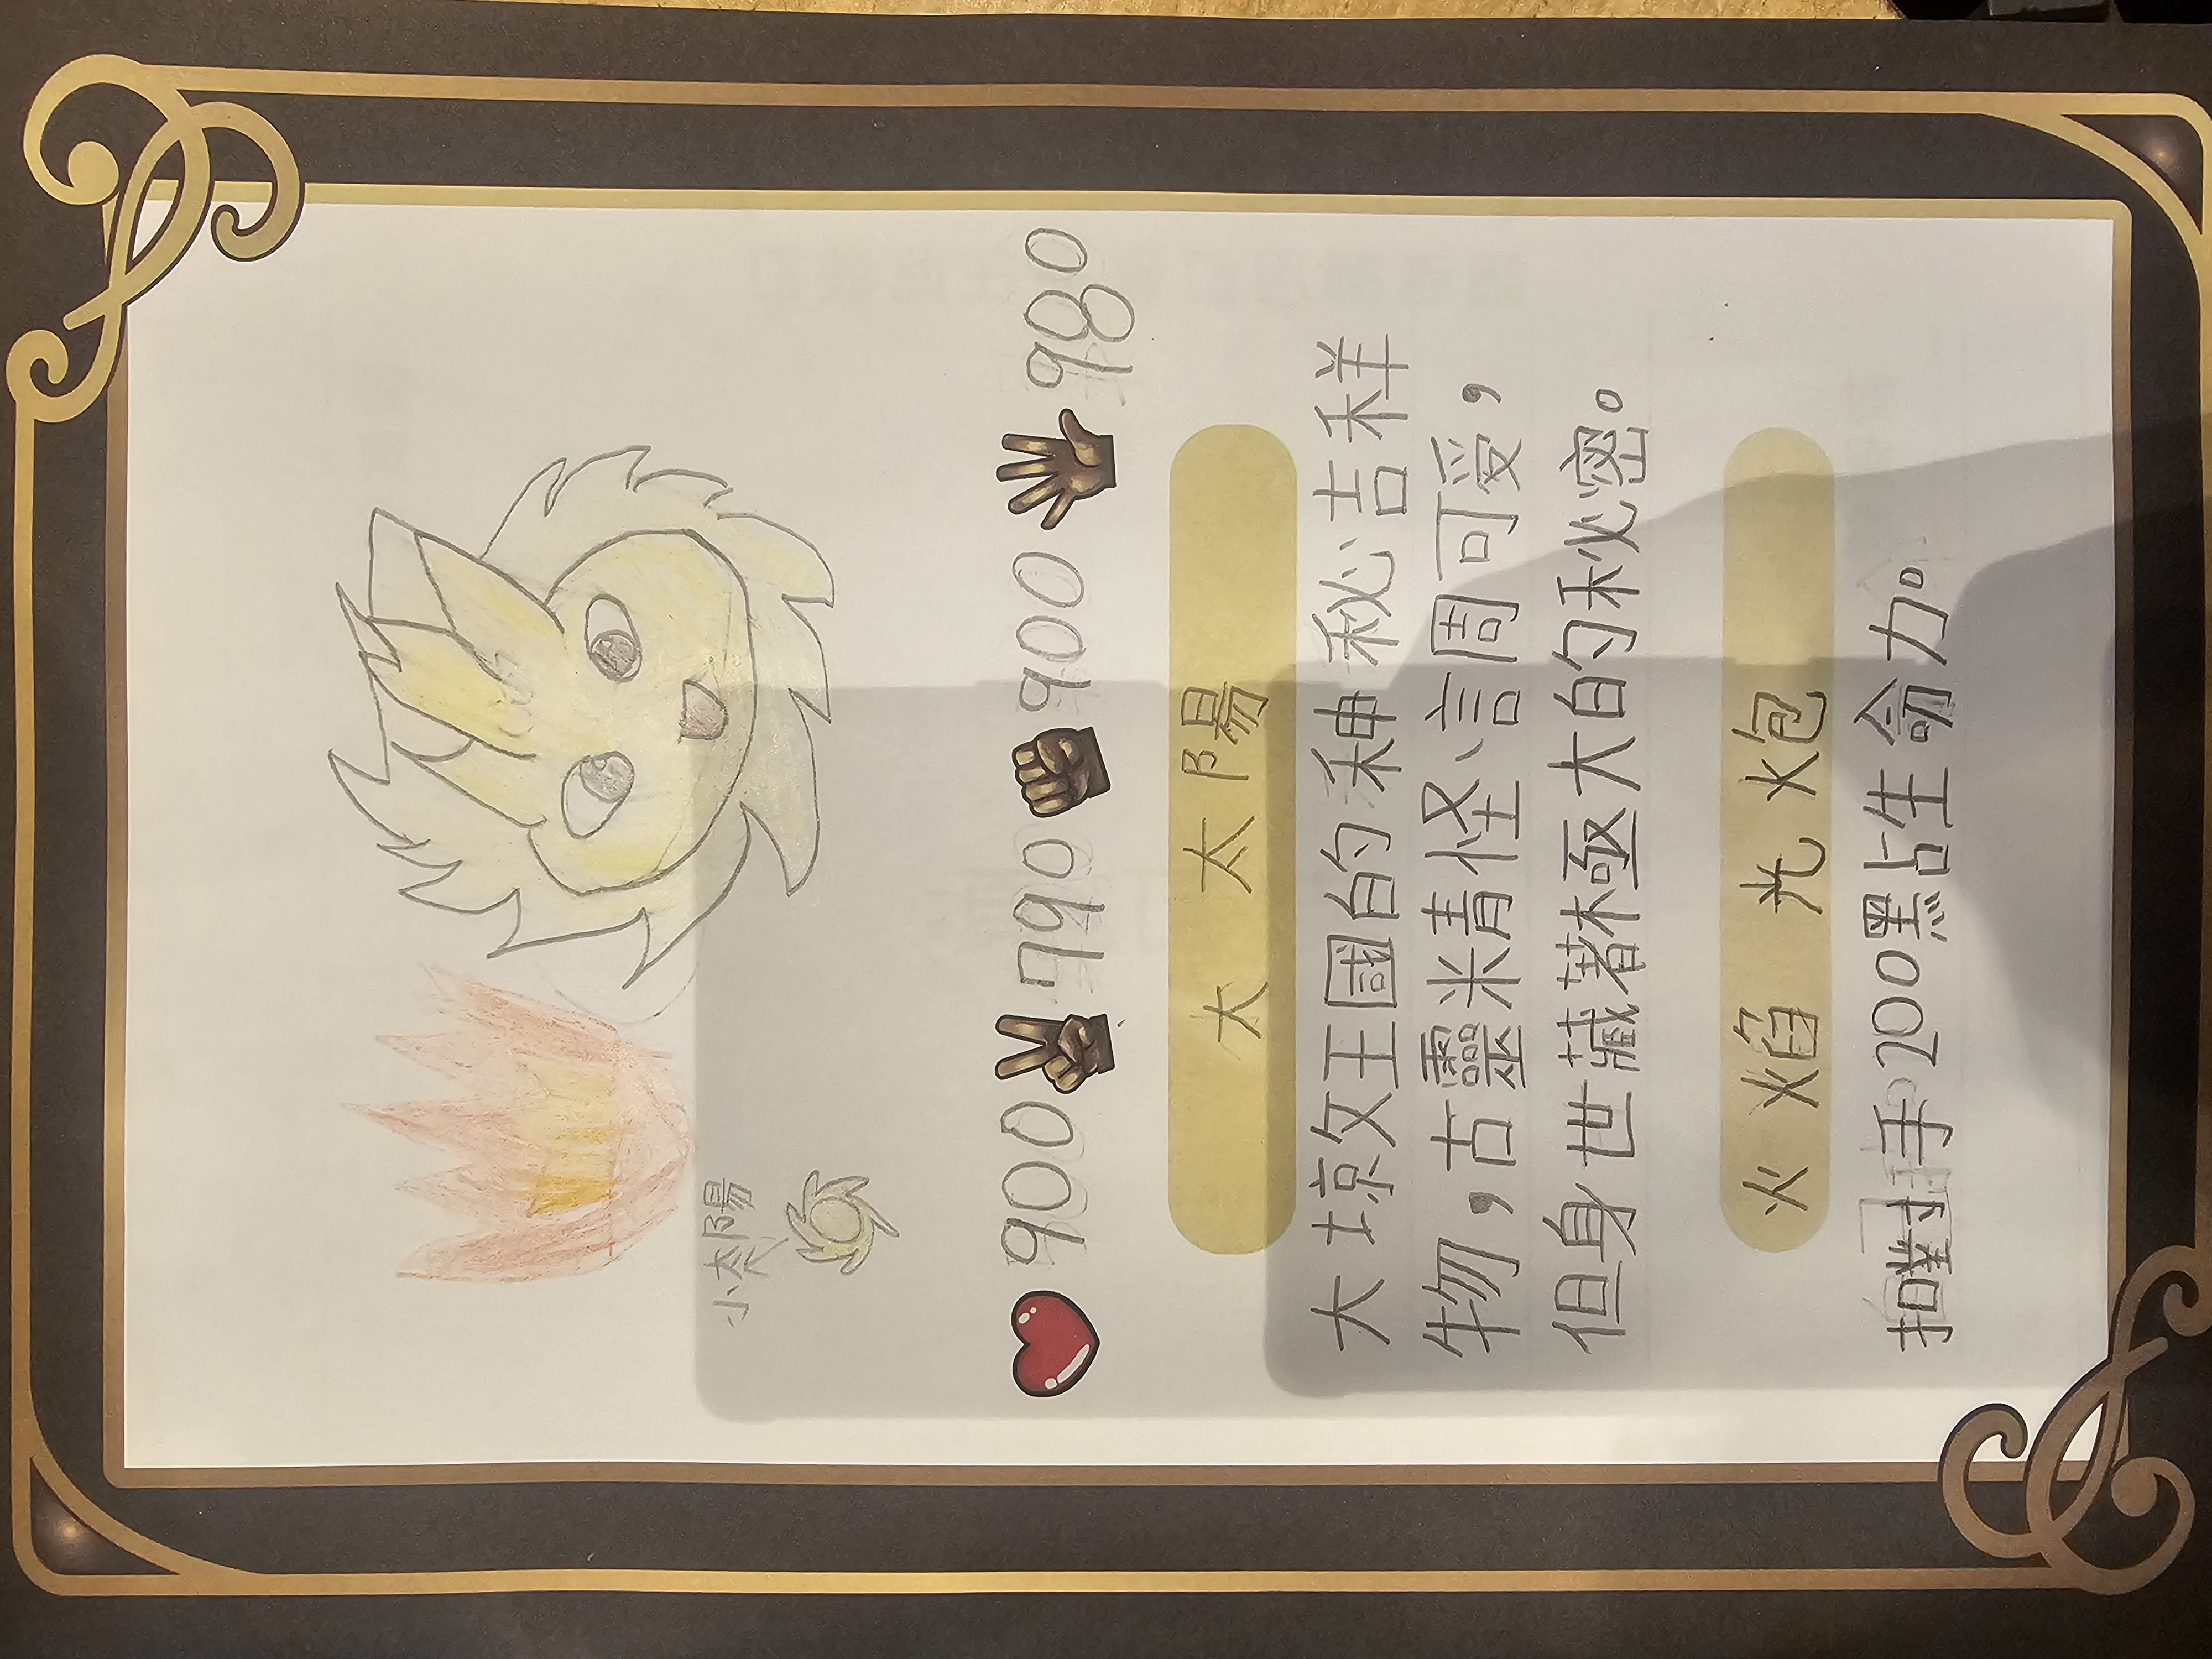 小太陽
900 790 900 980
大太陽
大女王國的神秘吉祥
物，古靈精怪調可受，
但身世藏著極大的秘密。
火焰光炮
扣對手200點生命力。